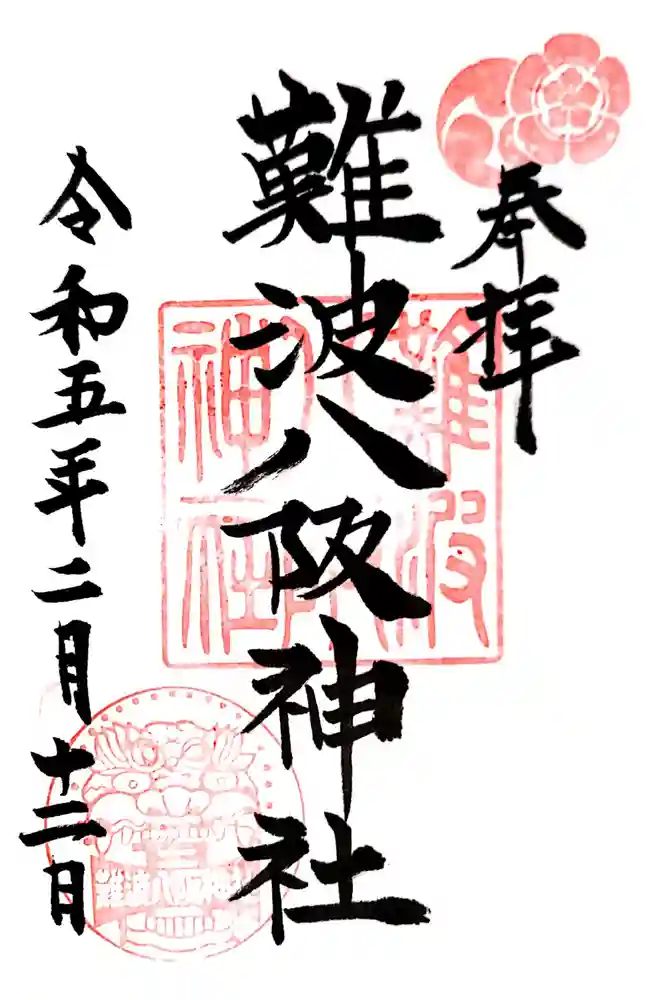 奉拝
難波八阪神社
令和五年二月十二日
難波八阪神社
難波八阪神社